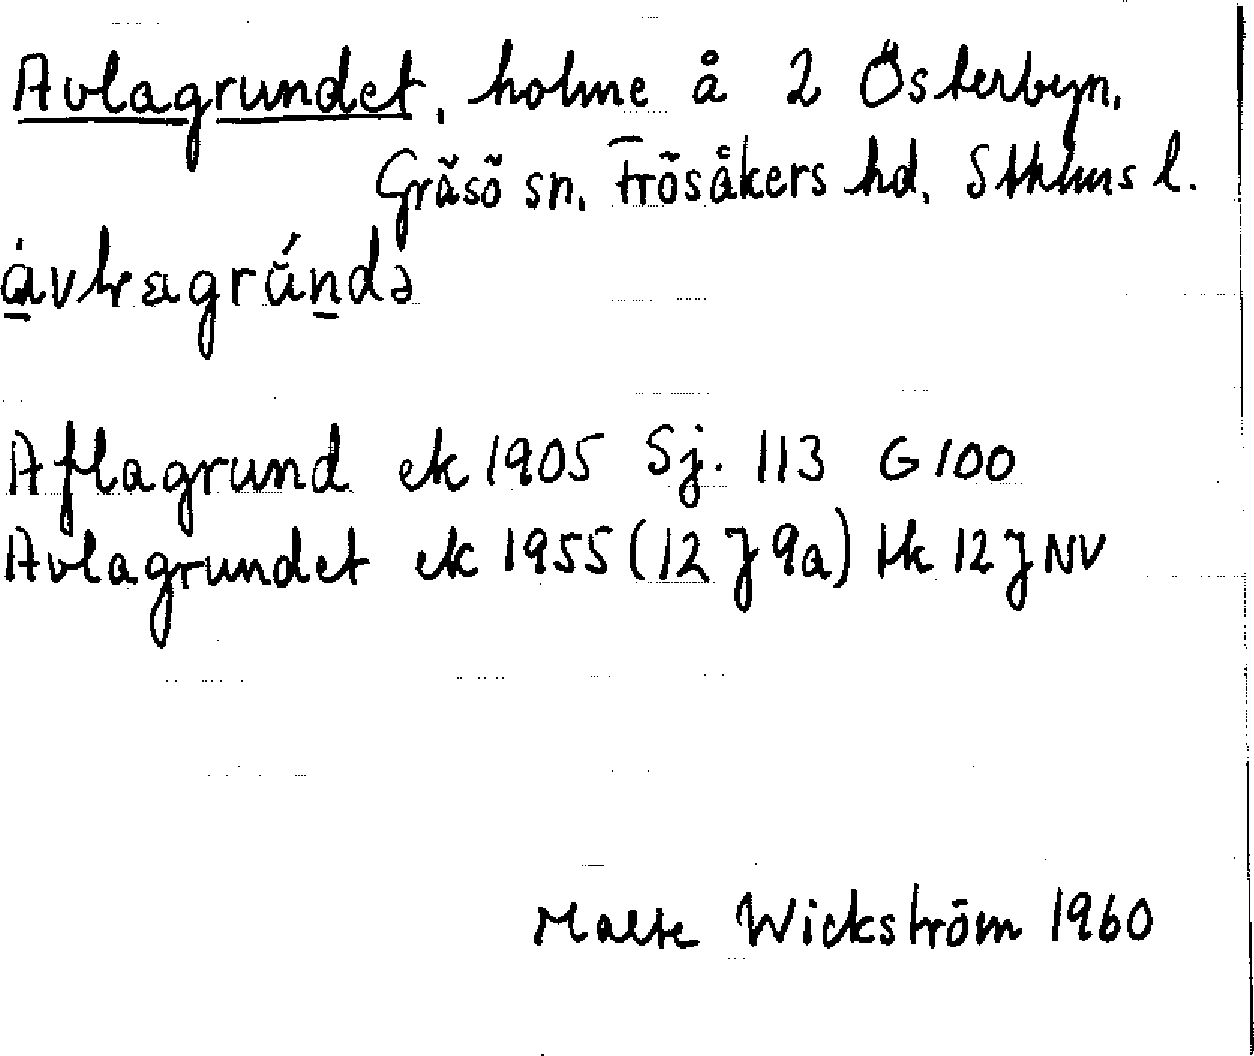 Avlagrundet, holme å 2 Österbyn,
Gräsö sn, Frösåkers hd, Sthlms l.
Aflagrund ek 1905 Sj. 113 G 100
Avlagrundet ek 1955 (12 J 9a) tk 12 J NV
Malte Wickström 1960